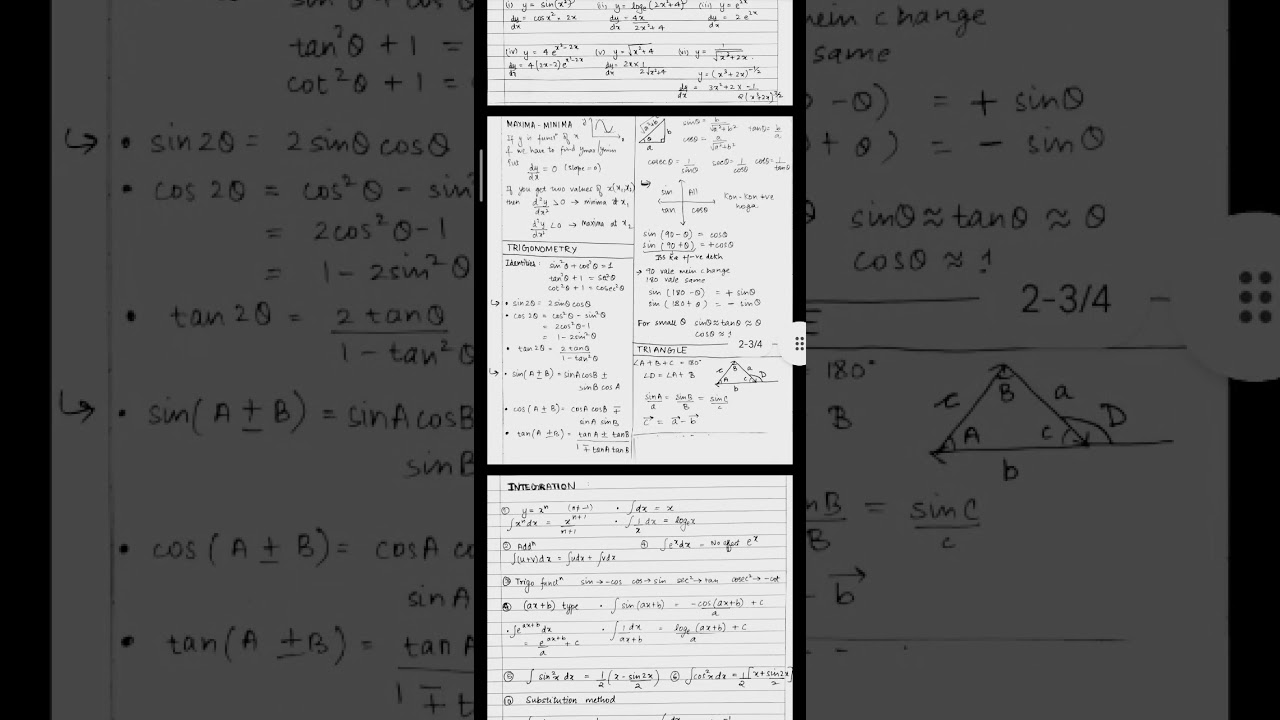 (i) y = sin(x²)
(ii) y = logₑ(2x²+4)
(iii) y = e²ˣ
dy/dx = cosx² · 2x
dy/dx = 4x/2x²+4
dy/dx = 2e²ˣ
(iv) y = 4e^(x²-2x)
(v) y = √x²+4
(vi) y = 1/√x³+2x
dy/dx = 4(2x-2)e^(x²-2x)
dy/dx = 2x × 1/2√x²+4
y = (x³+2x)^(-1/2)
MAXIMA - MINIMA
dy/dx = 0 (slope = 0)
If you get two values of x(x₁,x₂)
then d²y/dx² > 0 → minima at x₁
d²y/dx² < 0 → maxima at x₂
TRIGONOMETRY
Identities: sin²θ + cos²θ = 1
tan²θ + 1 = sec²θ
cot²θ + 1 = cosec²θ
• sin2θ = 2sinθ cosθ
• cos 2θ = cos²θ - sin²θ
= 2cos²θ-1
= 1-2sin²θ
• tan 2θ = 2tanθ/1-tan²θ
• sin(A ± B) = sinAcosB ±
sinB cosA
• cos(A ± B) = cosA cosB ∓
sinA sinB
• tan(A ± B) = tanA ± tanB/1 ∓ tanA tanB
sinθ = b/√a²+b²
tanθ = b/a
cosθ = a/√a²+b²
b
a
θ
cosecθ = 1/sinθ
secθ = 1/cosθ
cotθ = 1/tanθ
sin All
tan cosθ
Kon-kon +ve
hoga
sin(90-θ) = cosθ
sin(90+θ) = +cosθ
→ 90 wale mein change
180 wale same
sin(180-θ) = + sinθ
sin(180+θ) = - sinθ
For small θ sinθ ≈ tanθ ≈ θ
cosθ ≈ 1
2-3/4
TRIANGLE
∠A + B + C = 180°
∠D = ∠A + B
c B a
A C D
b
sinA/a = sinB/B = sinC/c
c⃗ = a⃗ - b⃗
INTEGRATION :
① y = xⁿ (n≠-1) • ∫dx = x
∫xⁿdx = xⁿ⁺¹/n+1 • ∫1/x dx = logₑx
② Addⁿ ④ ∫eˣdx = No effect eˣ
∫(u+v)dx = ∫udx + ∫vdx
③ Trigo functⁿ sin → -cos cos → sin sec² → tan cosec² → -cot
④ (ax+b) type • ∫sin(ax+b) = -cos(ax+b)/a + c
• ∫e^(ax+b) dx • ∫1dx/ax+b = logₑ(ax+b)/a + c
= e^(ax+b)/a + c
⑤ ∫sin²x dx = 1/2(x - sin2x/2) ⑥ ∫cos²x dx = 1/2[x + sin2x/2]
Substitution method